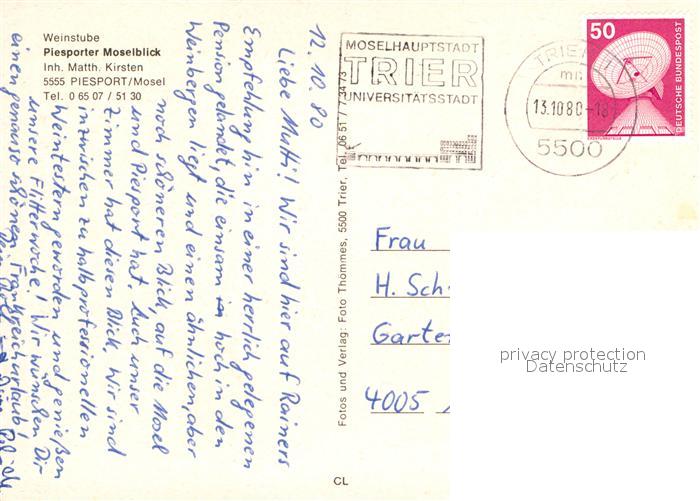 Weinstube
Piesporter Moselblick
Inh. Matth. Kirsten
5555 PIESPORT/Mosel
Tel. 0 65 07 / 51 30
12.10.80
Liebe Mutti! Wir sind hier auf Rainers
Empfehlung hin in einer herrlich gelegenen
Pension gelandet, die einsam in hoch in den
Weinbergen liegt und einen ähnlichen, aber
noch schöneren Blick, auf die Mosel
und Piesport hat. Auch unser
Zimmer hat diesen Blick. Wir sind
inzwischen zu halbprofessionellen
Weintestern geworden und genießen
unsere Flitterwoche! Wir wünschen Dir
einen genauso schönen Frankreichurlaub!
Fotos und Verlag: Foto Thömmes, 5500 Trier, Tel. 06 51 / 7 34 73
CL
MOSELHAUPTSTADT
TRIER
UNIVERSITÄTSSTADT
TRIER 1
mn
13.10.80-18
5500
50
DEUTSCHE BUNDESPOST
Frau
H. Sch
Garte
4005
privacy protection
Datenschutz